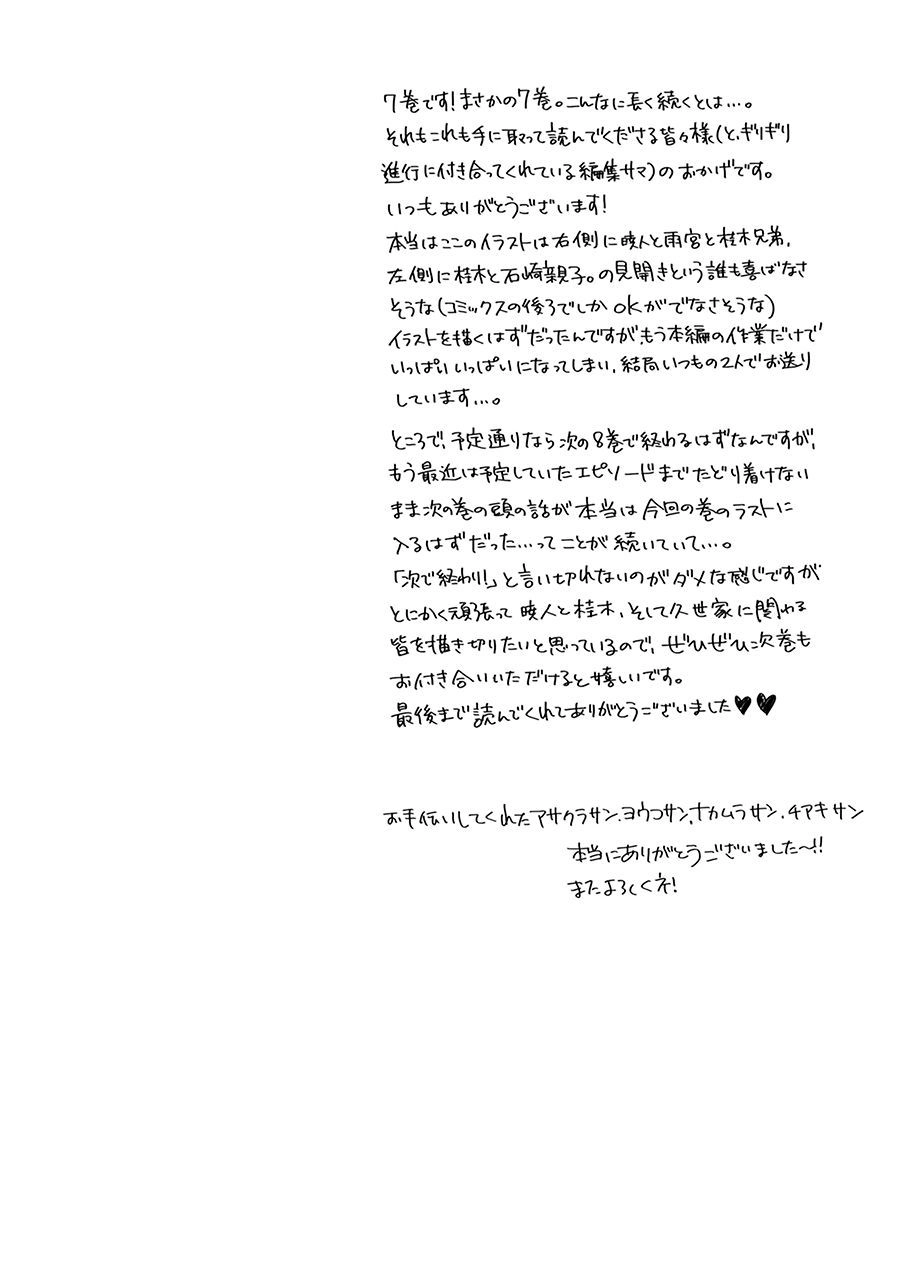 7巻です!まさかの7巻。こんなに長く続くとは…。
それもこれも手に取って読んでくださる皆々様(と、ギリギリ
進行に付き合ってくれている編集サマ)のおかげです。
いつもありがとうございます!
本当はここのイラストは右側に暁人と雨宮と桂木兄弟、
左側に桂木と石崎親子。の見開きという誰も喜ばなさ
そうな(コミックスの後ろでしかokがでなさそうな)
イラストを描くはずだったんですが、もう本編の作業だけで
いっぱいいっぱいになってしまい、結局いつもの2人でお送り
しています…。
ところで、予定通りなら次の8巻で終わるはずなんですが、
もう最近は予定していたエピソードまでたどり着けない
まま次の巻の頭の話が本当は今回の巻のラストに
入るはずだった…ってことが続いていて…。
「次で終わり!」と言い切れないのがダメな感じですが
とにかく頑張って暁人と桂木、そして久世家に関わる
皆を描き切りたいと思っているので、ぜひぜひ次巻も
お付き合いいただけると嬉しいです。
最後まで読んでくれてありがとうございました♥♥
お手伝いしてくれたアサクラサン、ヨウコサン、ナカムラサン、チアキサン
本当にありがとうございました〜!!
またよろしくネ!